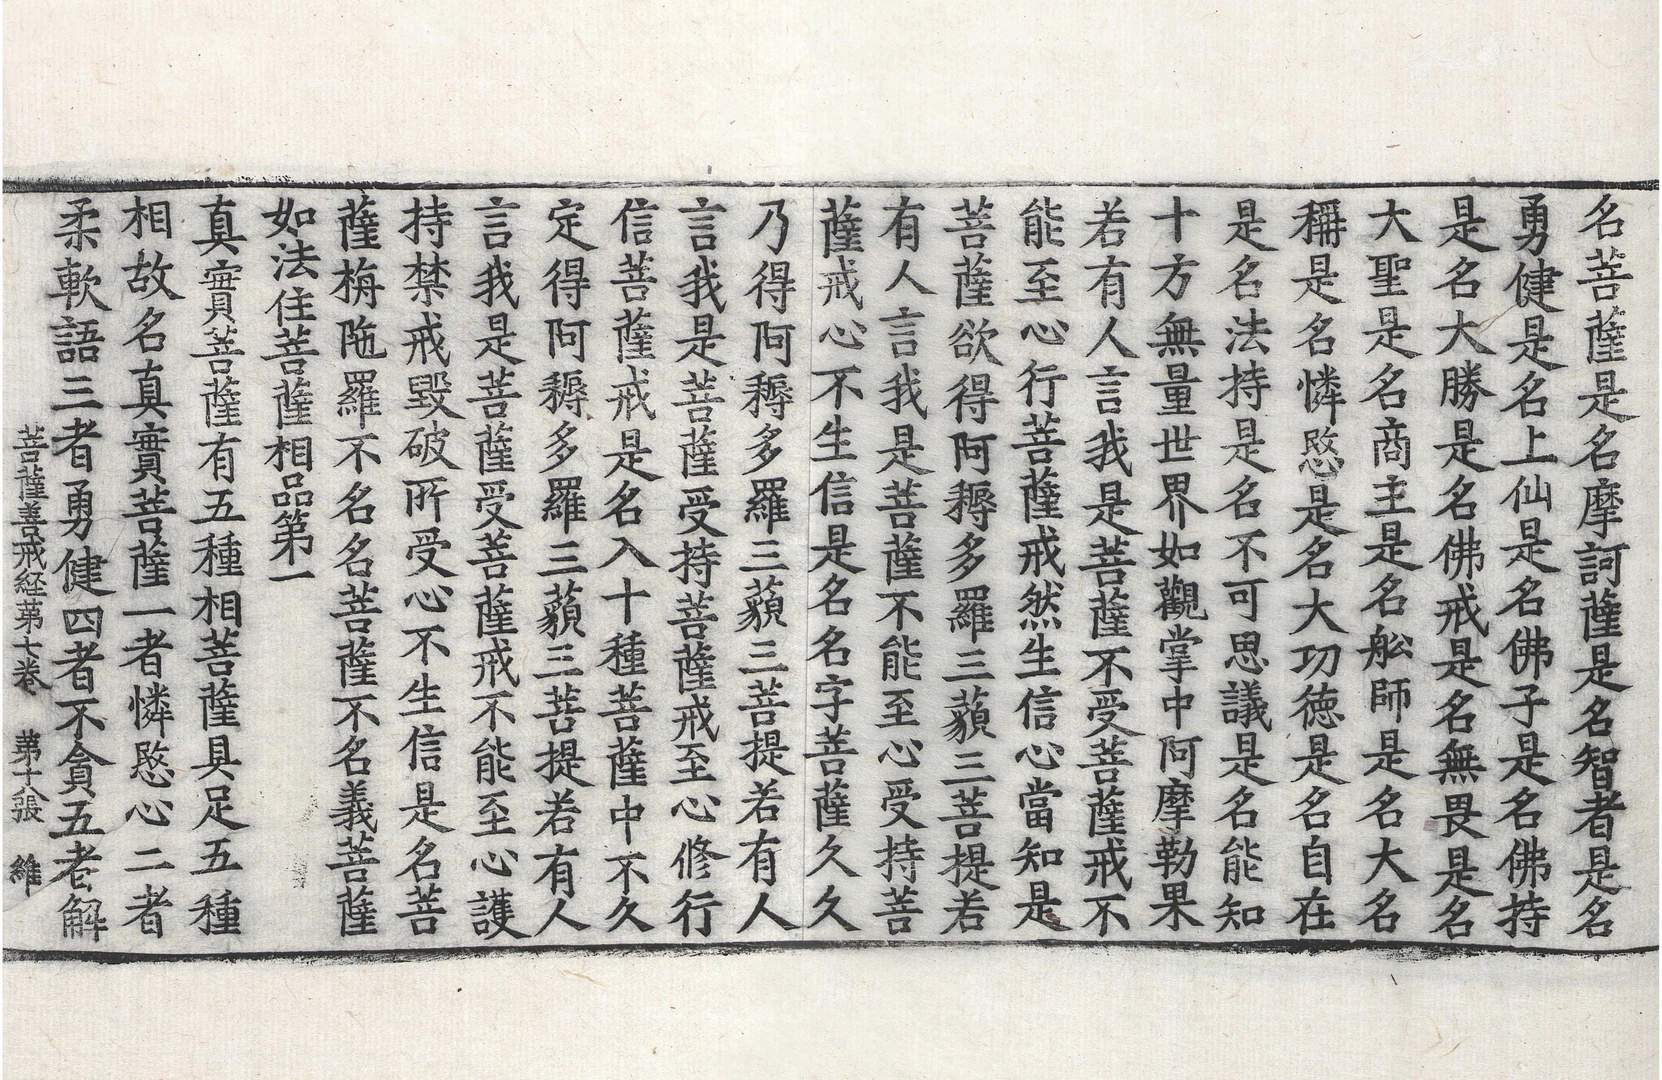 名菩薩是名摩訶薩是名智者是名
勇健是名上仙是名佛子是名佛持
是名大勝是名佛戒是名無畏是名
大聖是名商主是名舩師是名大名
稱是名憐愍是名大功徳是名自在
是名法持是名不可思議是名能知
十方無量世界如觀掌中阿摩勒果
若有人言我是菩薩不受菩薩戒不
能至心行菩薩戒然生信心當知是
菩薩欲得阿耨多羅三藐三菩提若
有人言我是菩薩不能至心受持菩
薩戒心不生信是名名字菩薩久久
乃得阿耨多羅三藐三菩提若有人
言我是菩薩受持菩薩戒至心修行
信菩薩戒是名入十種菩薩中不久
定得阿耨多羅三藐三菩提若有人
言我是菩薩受菩薩戒不能至心護
持禁戒毀破所受心不生信是名菩
薩栴陁羅不名名菩薩不名義菩薩
如法住菩薩相品第一
真實菩薩有五種相菩薩具足五種
相故名真實菩薩一者憐愍心二者
柔軟語三者勇健四者不貪五者解
菩薩善戒経苐七巻 苐十八張 維